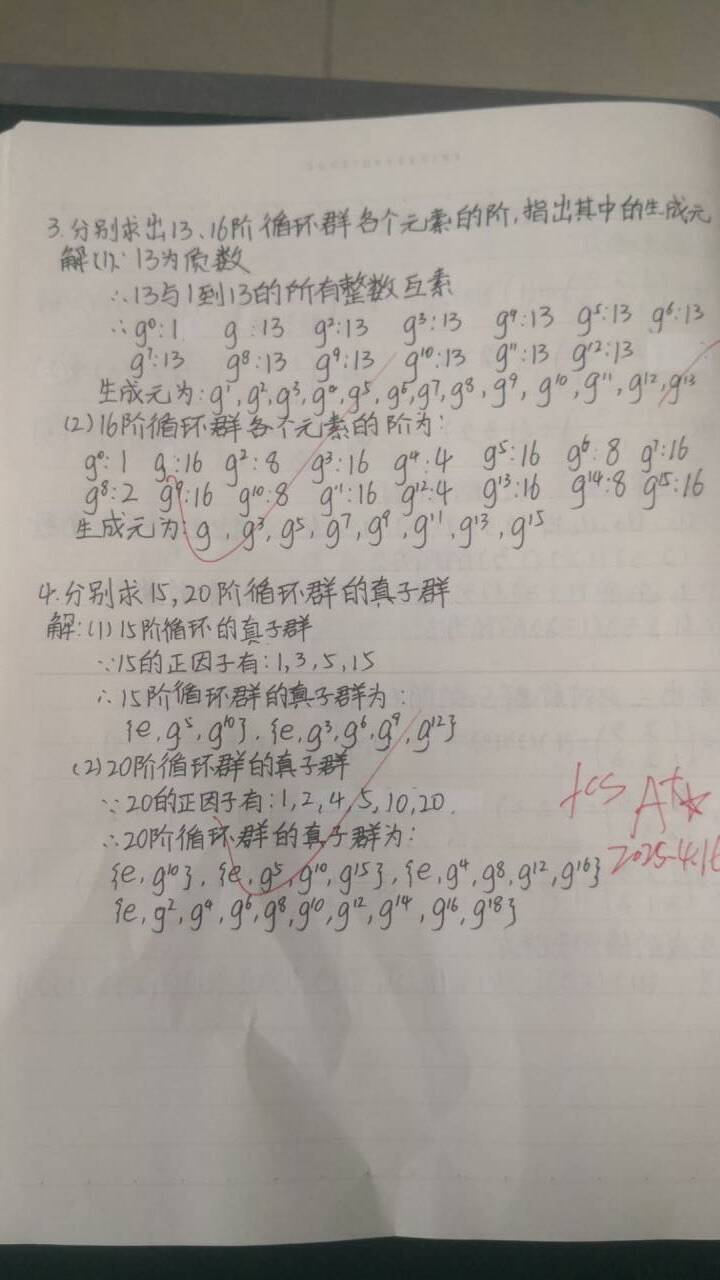 3.分别求出13、16阶循环群各个元素的阶,指出其中的生成元
解(1)∵13为质数
∴13与1到13的所有整数互素
∴g⁰:1 g:13 g²:13 g³:13 g⁴:13 g⁵:13 g⁶:13
g⁷:13 g⁸:13 g⁹:13 g¹⁰:13 g¹¹:13 g¹²:13
生成元为:g¹,g²,g³,g⁴,g⁵,g⁶,g⁷,g⁸,g⁹,g¹⁰,g¹¹,g¹²,g¹³
(2)16阶循环群各个元素的阶为:
g⁰:1 g:16 g²:8 g³:16 g⁴:4 g⁵:16 g⁶:8 g⁷:16
g⁸:2 g⁹:16 g¹⁰:8 g¹¹:16 g¹²:4 g¹³:16 g¹⁴:8 g¹⁵:16
生成元为:g,g³,g⁵,g⁷,g⁹,g¹¹,g¹³,g¹⁵
4.分别求15,20阶循环群的真子群
解:(1)15阶循环的真子群
∵15的正因子有:1,3,5,15
∴15阶循环群的真子群为:
{e,g⁵,g¹⁰},{e,g³,g⁶,g⁹,g¹²}
(2)20阶循环群的真子群
∵20的正因子有:1,2,4,5,10,20.
∴20阶循环群的真子群为:
{e,g¹⁰},{e,g⁵,g¹⁰,g¹⁵},{e,g⁴,g⁸,g¹²,g¹⁶}
{e,g²,g⁴,g⁶,g⁸,g¹⁰,g¹²,g¹⁴,g¹⁶,g¹⁸}
A+☆
2025-4.16